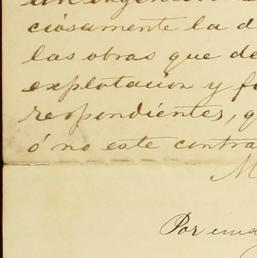 un ingeni
ciosamente la d
las obras que de
explotacion y fu
respondientes, q
ó no este contra
M
Por ema